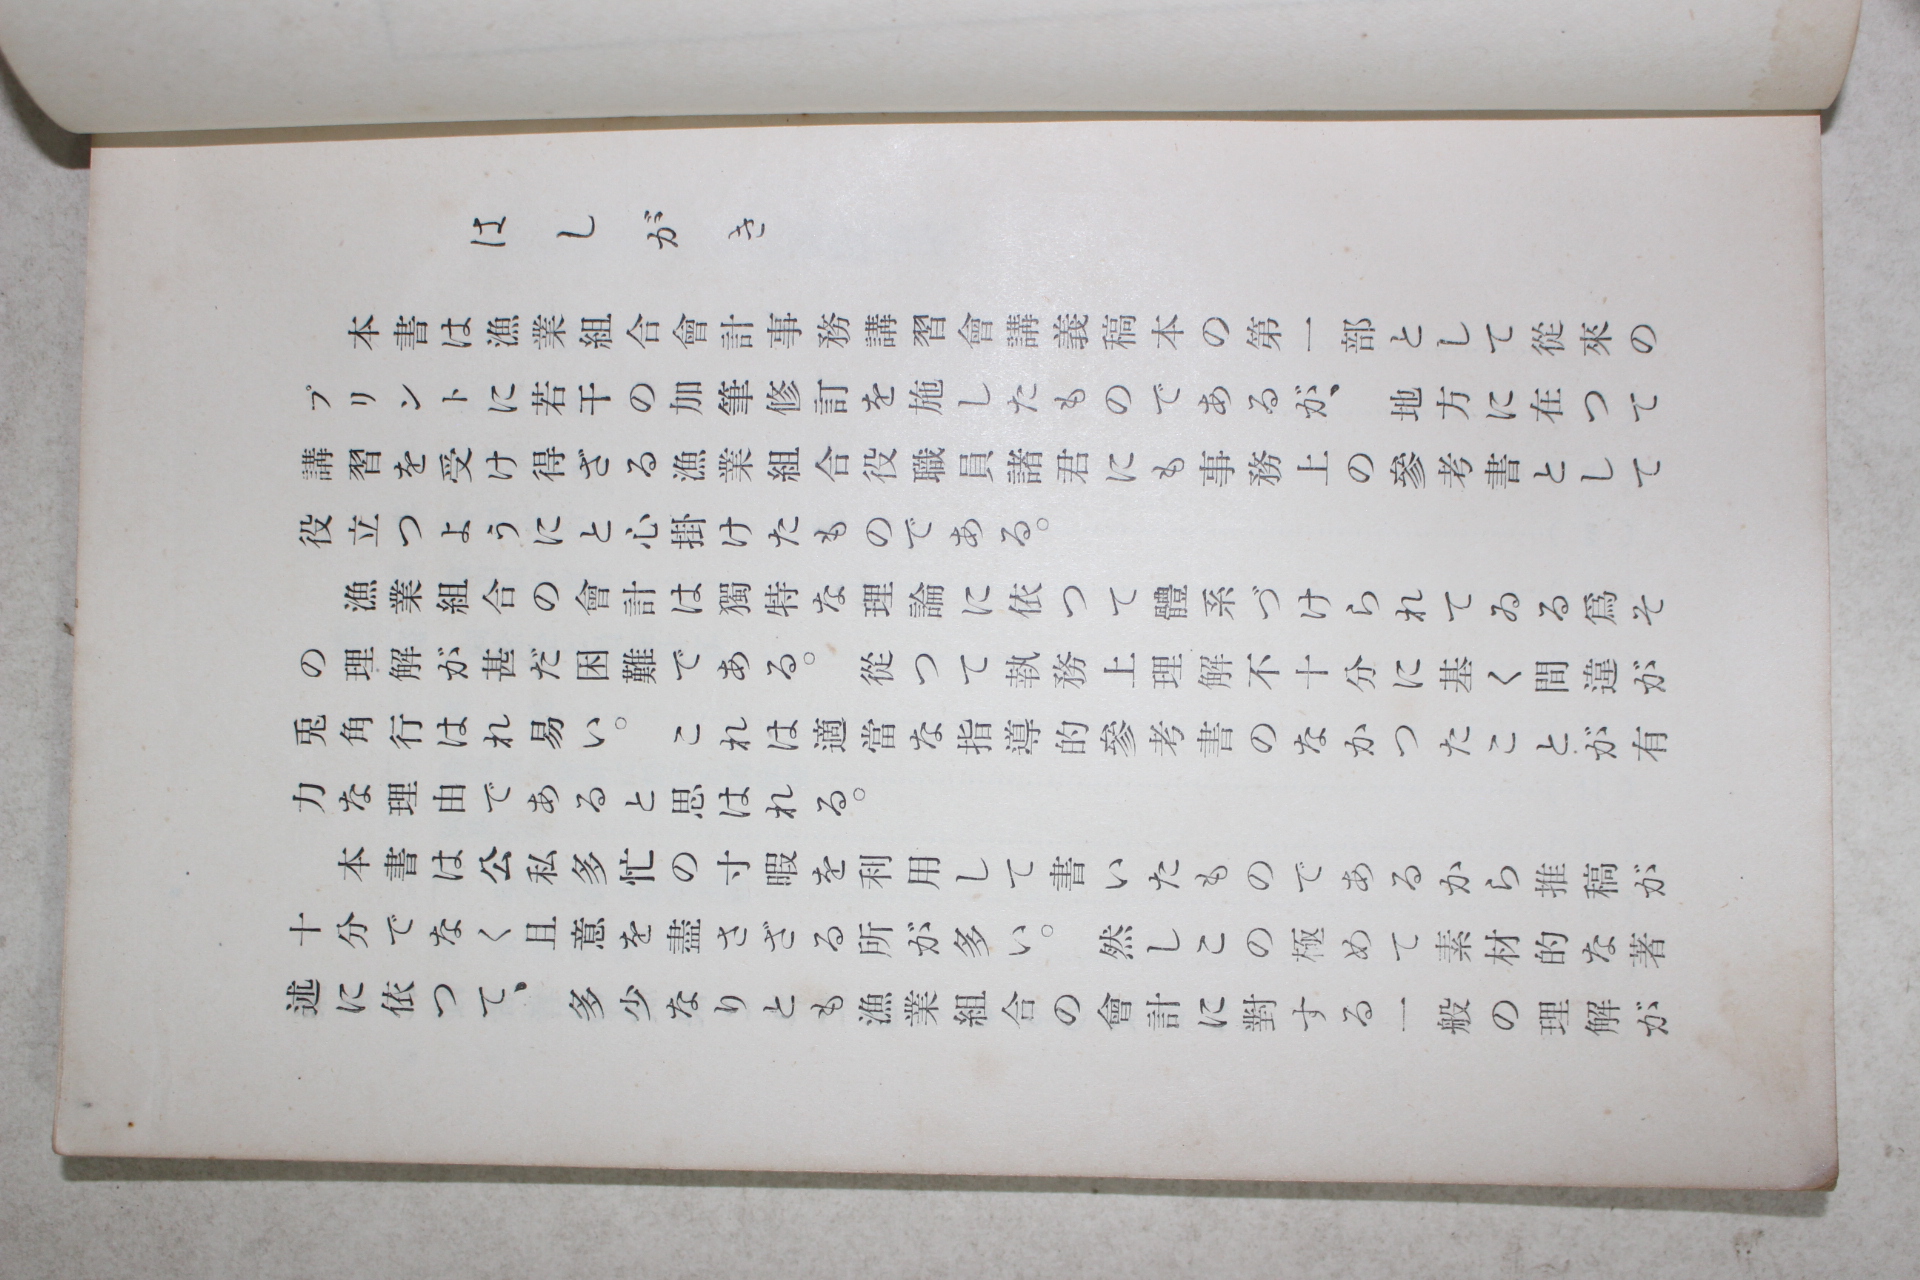 はしがき
本書は漁業組合會計事務講習會講義稿本の第一部として從來の
プリントに若干の加筆修訂を施したものであるが、地方に在つて
講習を受け得ざる漁業組合役職員諸君にも事務上の參考書として
役立つようにと心掛けたものである。
漁業組合の會計は獨特な理論に依つて體系づけられてゐる爲そ
の理解が甚だ困難である。從つて執務上理解不十分に基く間違が
兎角行はれ易い。これは適當な指導的參考書のなかつたことが有
力な理由であると思はれる。
本書は公私多忙の寸暇を利用して書いたものであるから推稿が
十分でなく且意を盡さざる所が多い。然しこの極めて素材的な著
述に依つて、多少なりとも漁業組合の會計に對する一般の理解が